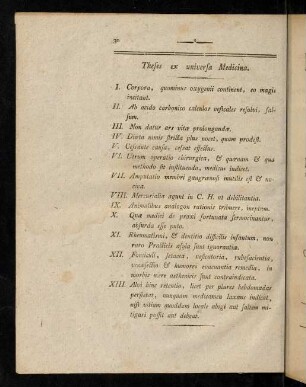 Theses ex universa Medicina.
I. Corpora, quominus oxygenii continent, eo magis
incitant.
II. Ab acido carbonico calculos vesicales resolvi, fal-
sum.
III. Non datur ars vitæ prolongandæ.
IV. Diæta nimis stricta plus nocet, quam prodest.
V. Cessante causa, cessat effectus.
VI. Utrum operatio chirurgica, & quænam & qua
methodo sit instituenda, medicus indicet.
VII. Amputatio membri gangrænosi inutilis est & no-
xia.
VIII. Mercurialia agunt in C. H. ut debilitantia.
IX. Animalibus analogon rationis tribuere, ineptum.
X. Quæ medici de praxi fortunata sermocinantur,
absurda esse puto.
XI. Rhevmatismi, & dentitio difficilis infantum, non
raro Practicis asyla sunt ignorantiæ.
XII. Fonticuli, setacea, vesicatoria, rubefacientes,
venæsectio & humores evacuantia remedia, in
morbis vere asthenicis sunt contraindicata.
XIII. Alvi hinc retentio, licet per plures hebdomadas
persistat, nunquam medicamen laxans indicat,
nisi vitium quoddam locale abigi aut saltem mi-
tigari possit aut debeat.